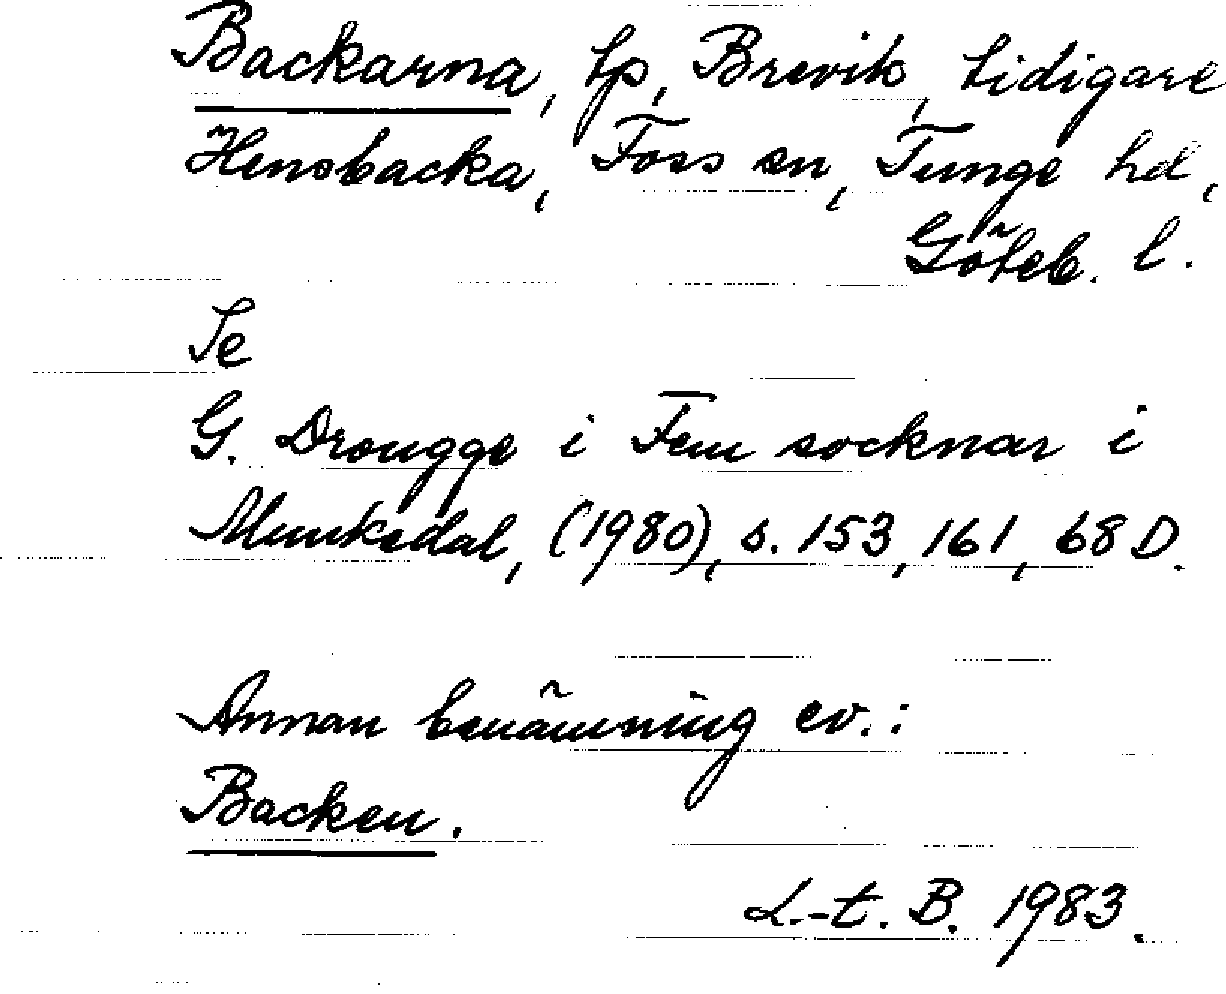 Backarna, tp, Brevik, tidigare
Hensbacka, Foss sn, Tunge hd,
Göteb. l.
Se
G. Drougge i Fem socknar i
Munkedal, (1980), s. 153, 161, 68 D.
Annan benämning ev.:
Backen.
L.-t. B. 1983.